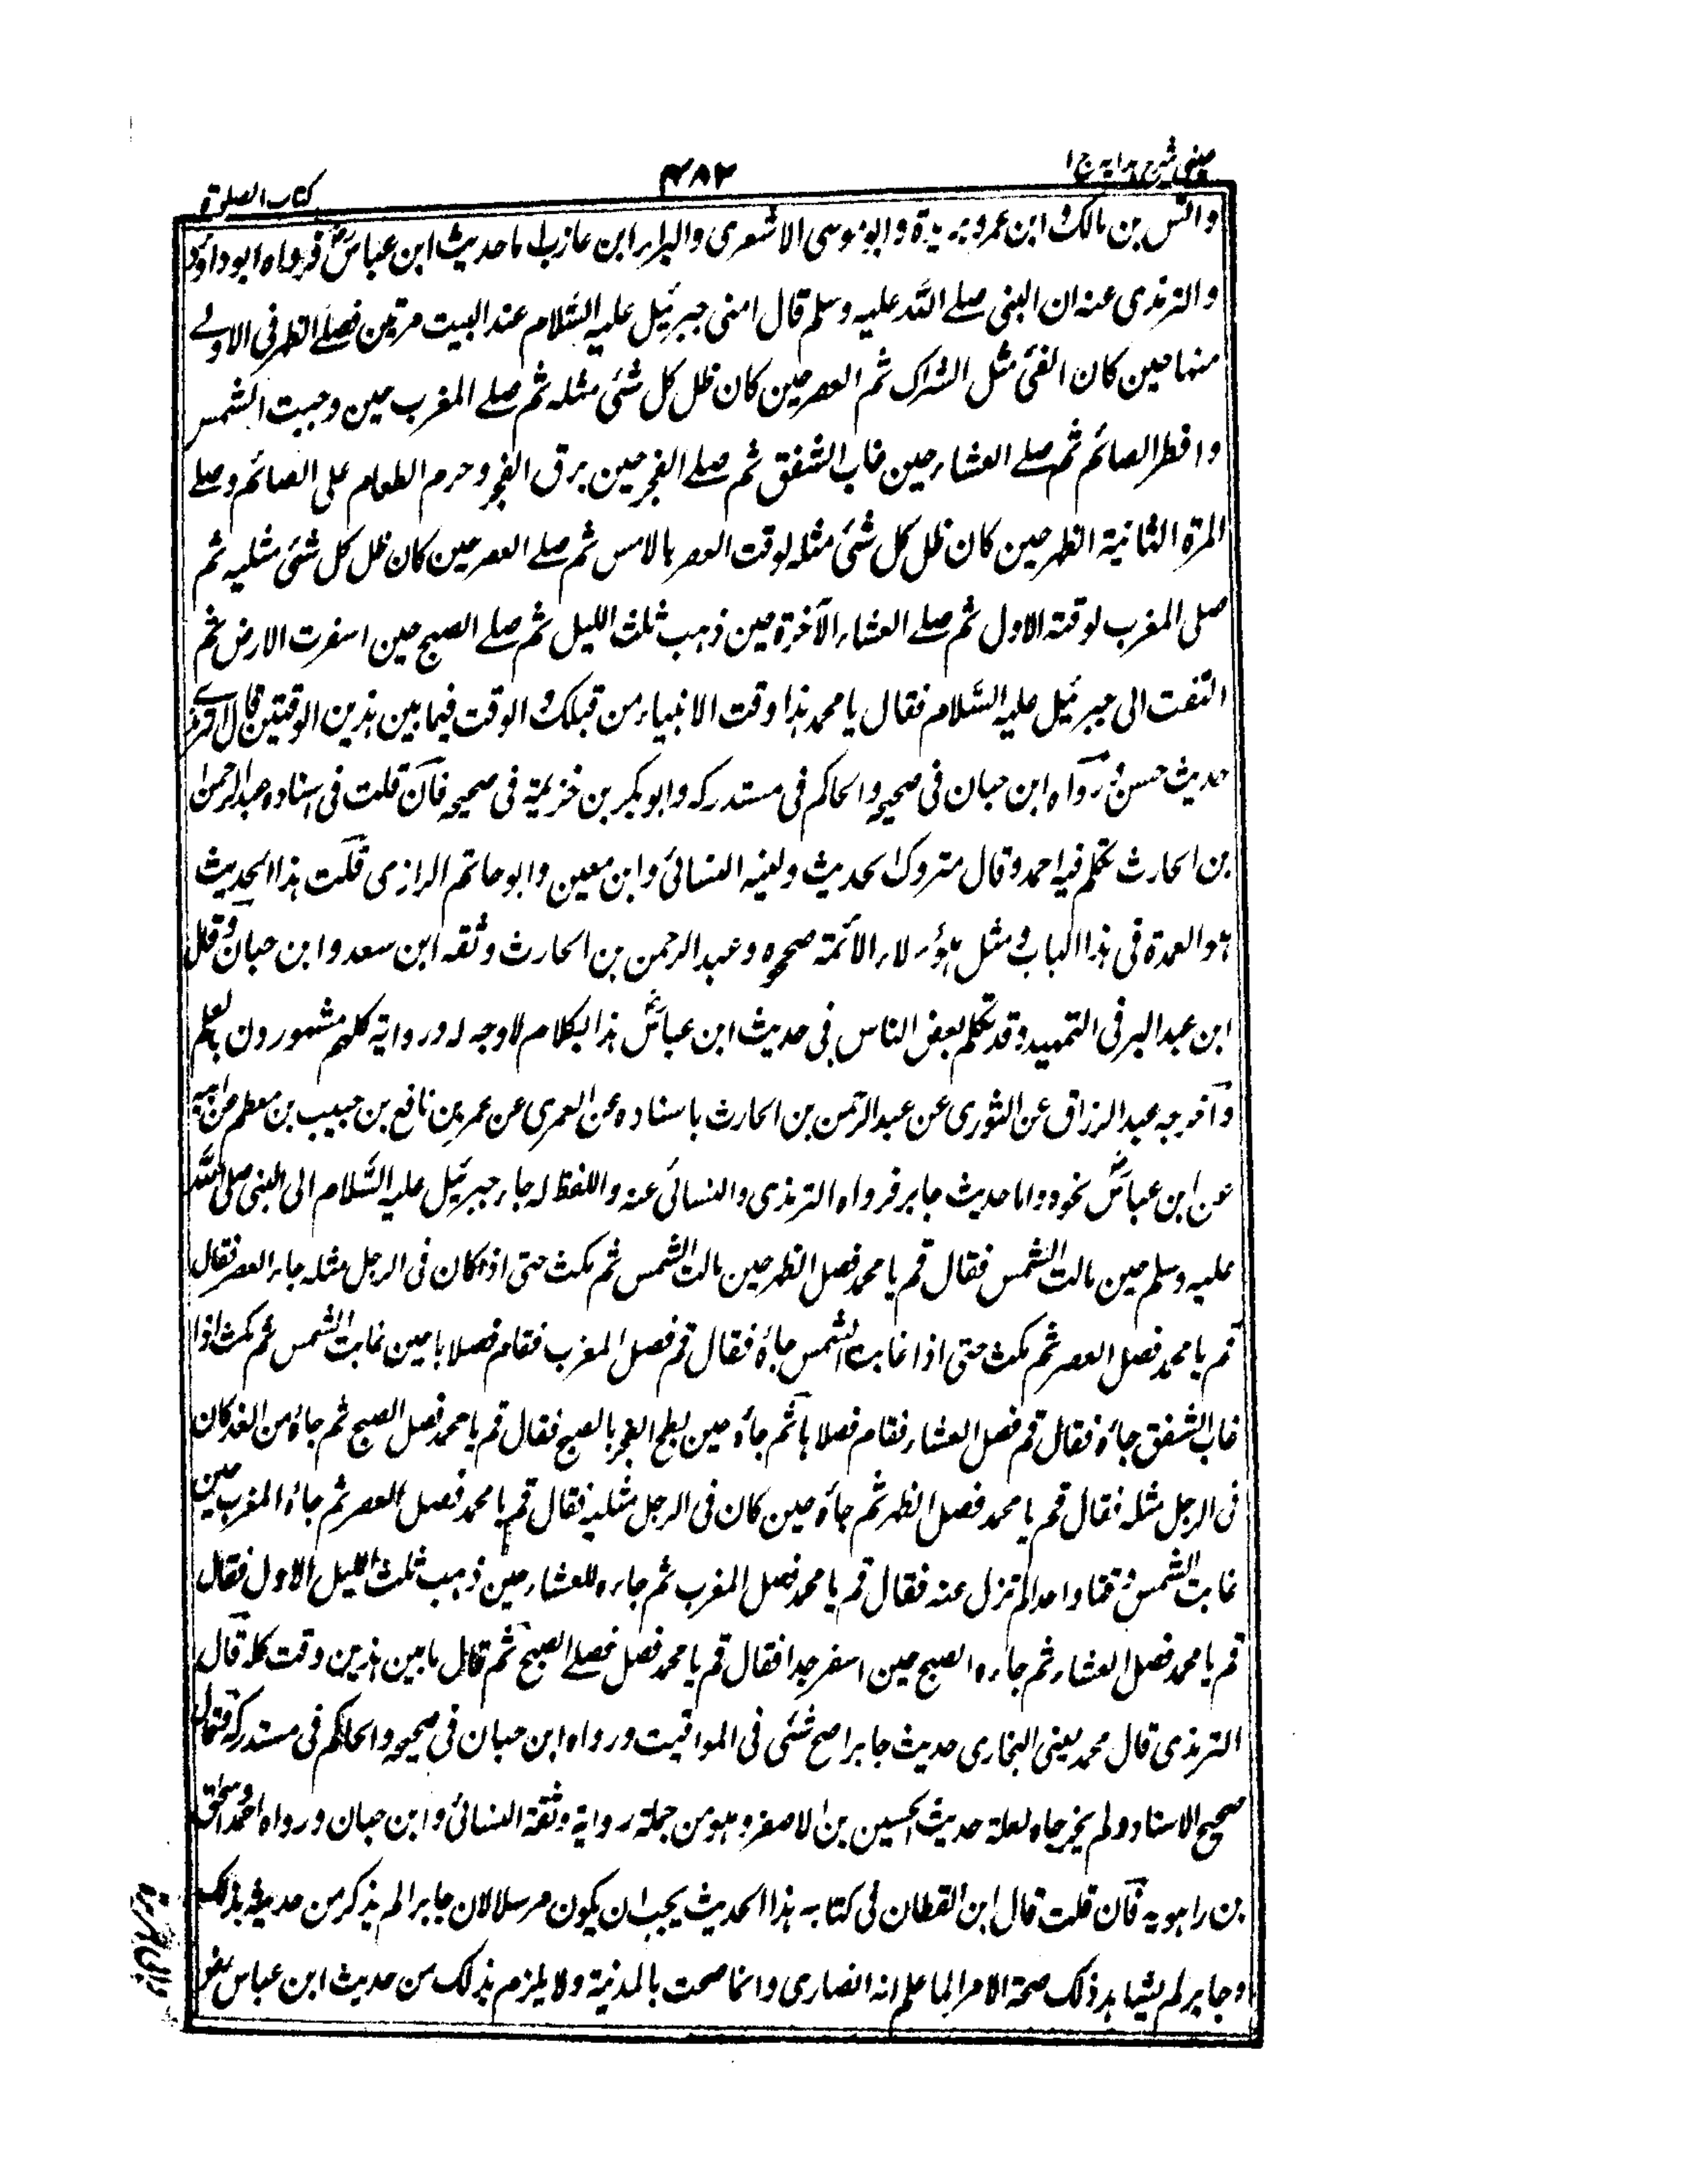 عینی شرح ہدایہ ج ا
۴۸۲
کتاب الصلوة
وانس بن مالک وابن عمرو بریدة وابو موسی الاشعری والبراء ابن عازب اما حدیث ابن عباس فرواہ ابو داؤد
والترمذی عنہ ان النبی صلے اللہ علیہ وسلم قال امنی جبرئیل علیہ السلام عند البیت مرتین فصلے الظہر فی الاولے
منہا حین کان الفئ مثل الشراک ثم العصر حین کان ظل کل شئ مثلہ ثم صلے المغرب حین وجبت الشمس
وافطر الصائم ثم صلے العشاء حین غاب الشفق ثم صلے الفجر حین برق الفجر وحرم الطعام علی الصائم وصلے
المرة الثانیة الظہر حین کان ظل کل شئ مثلہ لوقت العصر بالامس ثم صلے العصر حین کان ظل کل شئ مثلیہ ثم
صلی المغرب لوقتہ الاول ثم صلے العشاء الآخرة حین ذہب ثلث اللیل ثم صلے الصبح حین اسفرت الارض ثم
التفت الی جبرئیل علیہ السلام فقال یا محمد ہذا وقت الانبیاء من قبلک والوقت فیما بین ہذین الوقتین قال الترمذی
حدیث حسن ورواہ ابن حبان فی صحیحہ والحاکم فی مستدرکہ وابو بکر بن خزیمة فی صحیحہ فان قلت فی اسنادہ عبد الرحمن
بن الحارث تکلم فیہ احمد وقال متروک الحدیث ولینہ النسائی وابن معین وابو حاتم الرازی قلت ہذا الحدیث
ہو العمدة فی ہذا الباب ومثل ہؤلاء الائمة صححوہ وعبد الرحمن بن الحارث وثقہ ابن سعد وابن حبان وقال
ابن عبد البر فی التمہید وقد تکلم بعض الناس فی حدیث ابن عباس ہذا بکلام لا وجہ لہ وروایة کلہم مشہورون بالعلم
واخرجہ عبد الرزاق عن الثوری عن عبد الرحمن بن الحارث باسنادہ عن العمری عن عمر بن نافع بن جبیب بن مطعم عن ابیہ
عن ابن عباس نحوہ واما حدیث جابر فرواہ الترمذی والنسائی عنہ واللفظ لہ جاء جبرئیل علیہ السلام الی النبی صلی اللہ
علیہ وسلم حین مالت الشمس فقال قم یا محمد فصل الظہر حین مالت الشمس ثم مکث حتی اذا کان فی الرجل مثلہ جاء العصر فقال
قم یا محمد فصل العصر ثم مکث حتی اذا غابت الشمس جاءہ فقال قم فصل المغرب فقام فصلاہا حین غابت الشمس ثم مکث اذا
غاب الشفق جاءہ فقال قم فصل العشاء فقام فصلاہا ثم جاءہ حین سطع الفجر بالصبح فقال قم یا محمد فصل الصبح ثم جاءہ من الغد کان
فی الرجل مثلہ فقال قم یا محمد فصل الظہر ثم جاءہ حین کان فی الرجل مثلیہ فقال قم یا محمد فصل العصر ثم جاءہ المغرب حین
غابت الشمس وقتا واحدا لم تزل عنہ فقال قم یا محمد فصل المغرب ثم جاءہ للعشاء حین ذہب ثلث اللیل الاول فقال
قم یا محمد فصل العشاء ثم جاءہ الصبح حین اسفر جدا فقال قم یا محمد فصل فصلے الصبح ثم قال ما بین ہذین وقت کلہ قال
الترمذی قال محمد یعنی البخاری حدیث جابر اصح شئ فی المواقیت ورواہ ابن حبان فی صحیحہ والحاکم فی مستدرکہ فقال
صحیح الاسناد ولم یخرجاہ لعلة حدیث الحسین بن الاصغر وہو من جملة روایة وثقة النسائی وابن حبان ورواہ احمد واسحق
بن راہویہ فان قلت قال ابن القطان فی کتابہ ہذا الحدیث یجب ان یکون مرسلا لان جابرا لم یذکر من حدیثہ بذلک
وجابر لم یشاہد ذلک صحة الامر الما علم انہ انصاری وانما صحت بالمدینة ولا یلزم بذلک من حدیث ابن عباس